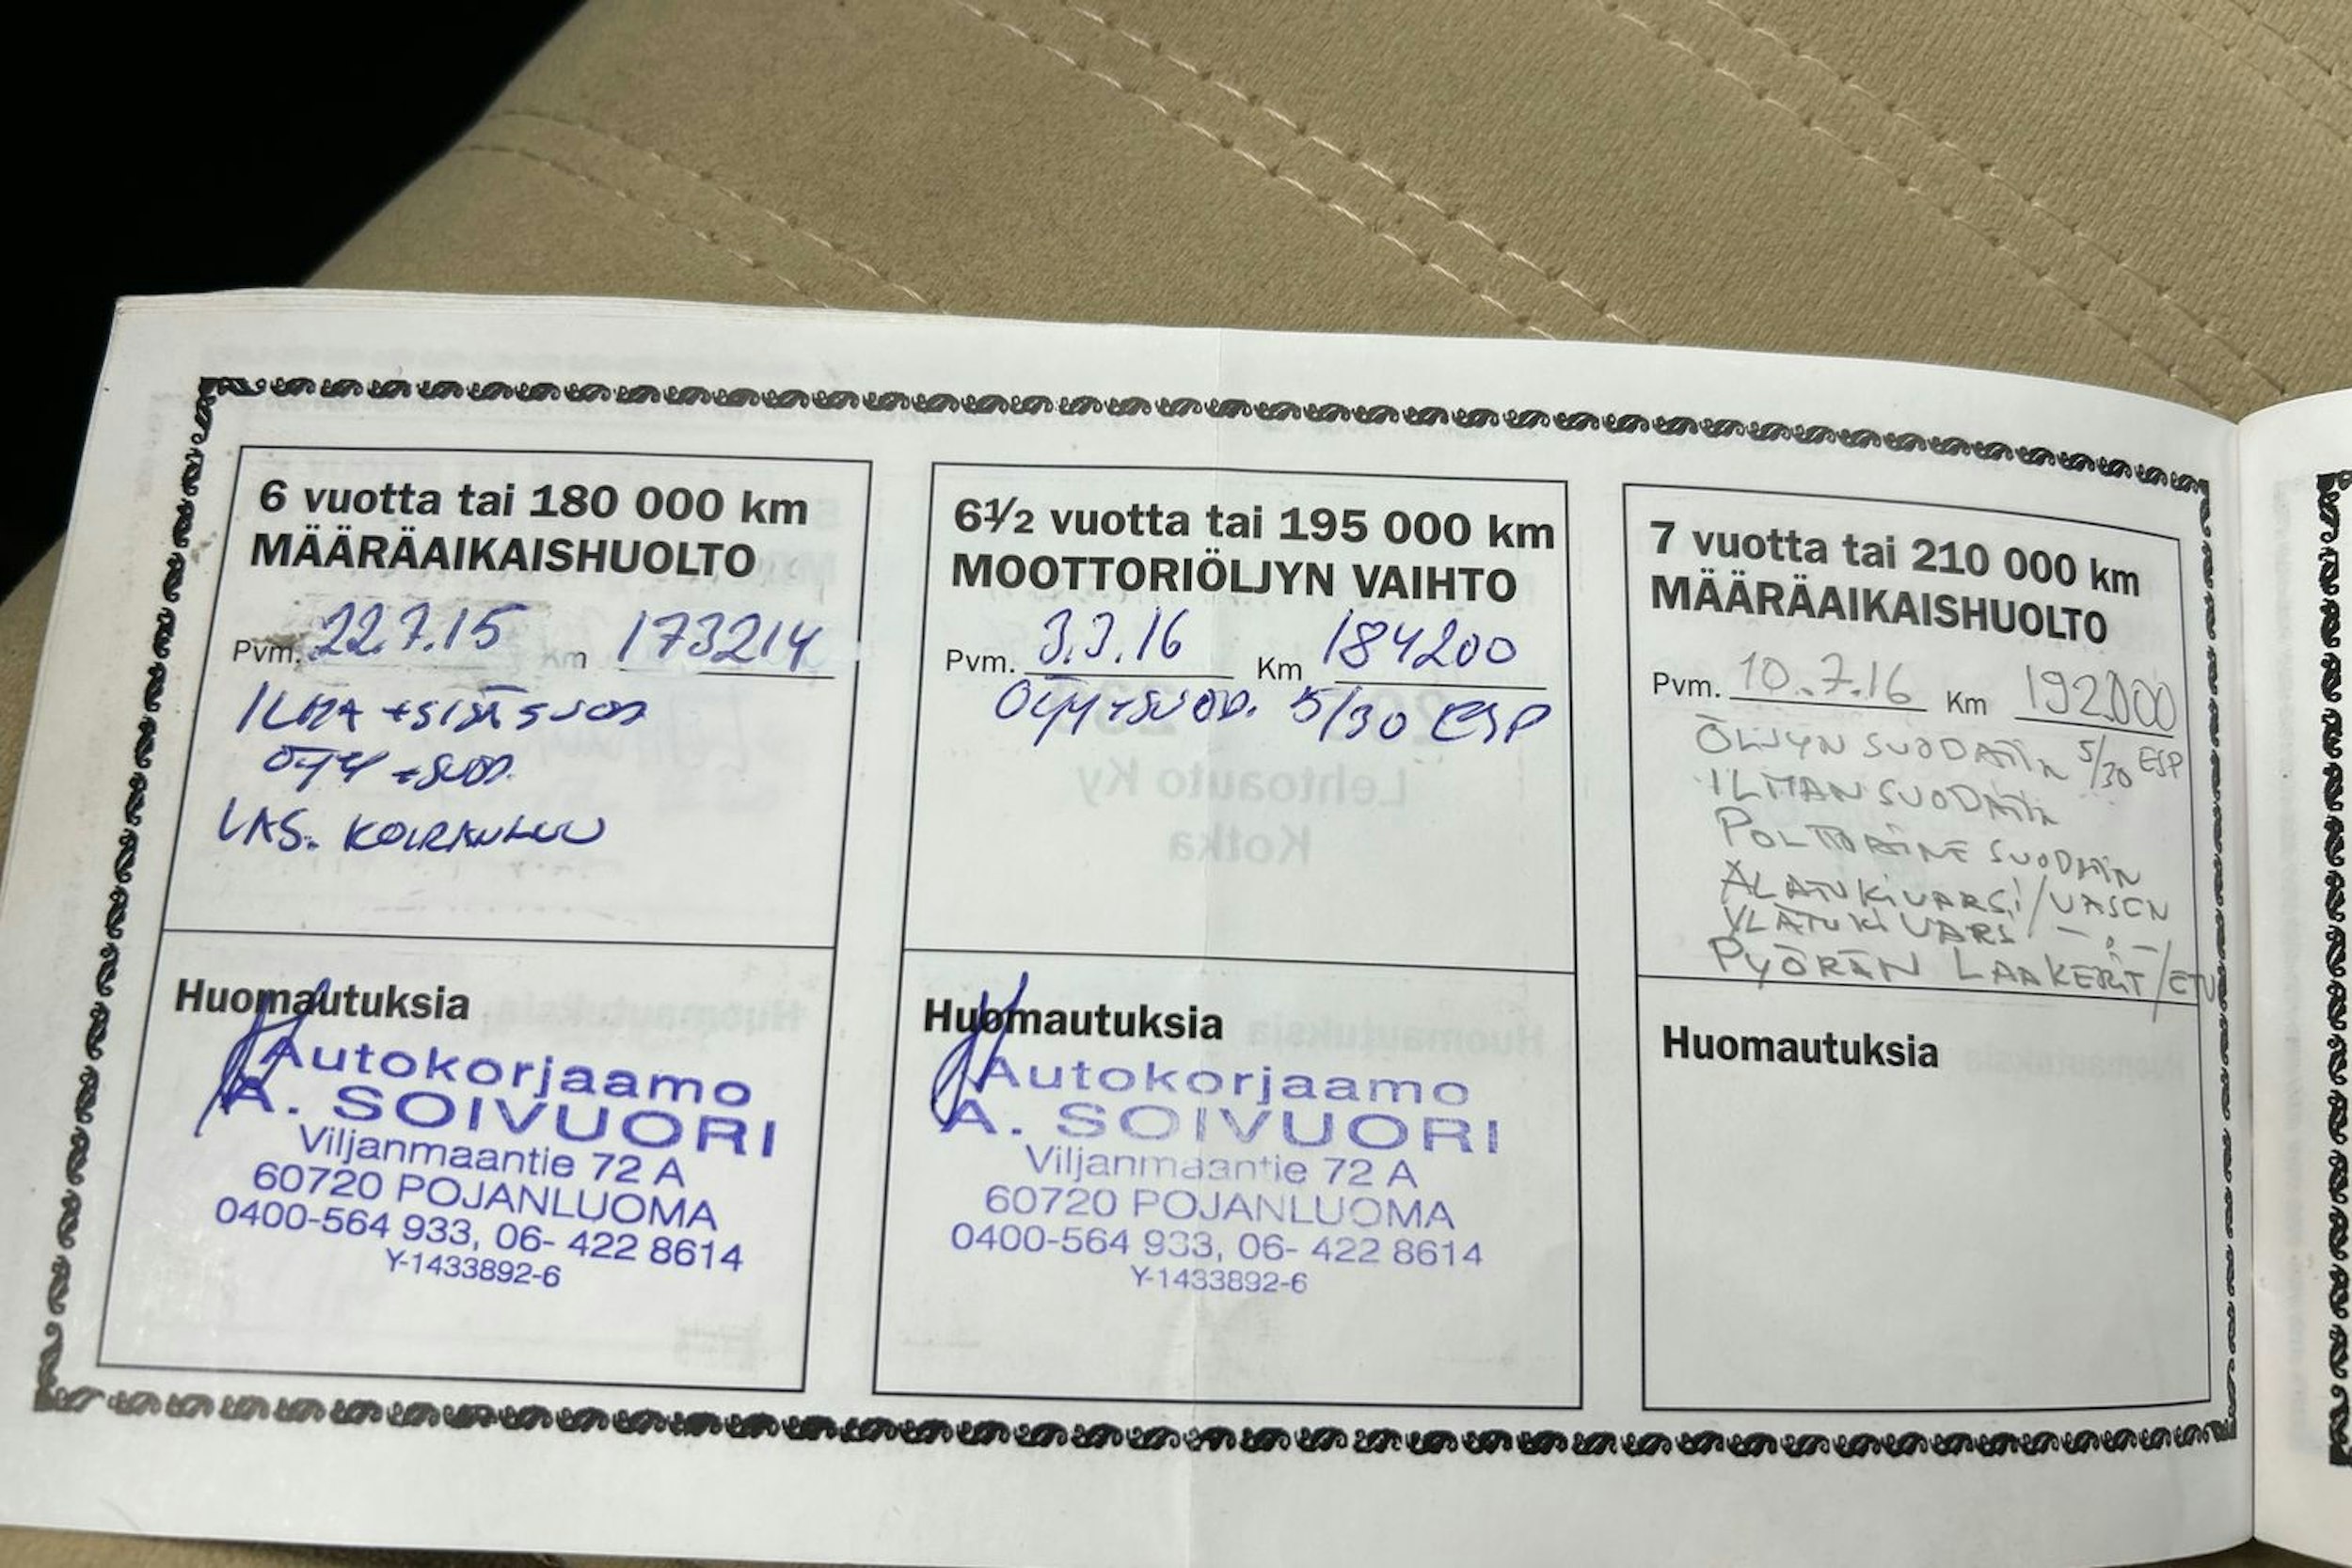 6 vuotta tai 180 000 km
MÄÄRÄAIKAISHUOLTO
Pvm. 22.7.15 Km 173214
ILMA + SISÄSUOD
ÖLJY + SUOD.
VAS. KOIRANLUU
Huomautuksia
Autokorjaamo
A. SOIVUORI
Viljanmaantie 72 A
60720 POJANLUOMA
0400-564 933, 06- 422 8614
Y-1433892-6
6½ vuotta tai 195 000 km
MOOTTORIÖLJYN VAIHTO
Pvm. 3.3.16 Km 184200
ÖLJY+SUOD. 5/30 ESP
Lehtoauto Ky
Kotka
Huomautuksia
Autokorjaamo
A. SOIVUORI
Viljanmaantie 72 A
60720 POJANLUOMA
0400-564 933, 06- 422 8614
Y-1433892-6
7 vuotta tai 210 000 km
MÄÄRÄAIKAISHUOLTO
Pvm. 10.7.16 Km 192000
ÖLJYN SUODATIN 5/30 ESP
ILMAN SUODATIN
POLTTOAINE SUODATIN
ALATUKIVARSI/VASEN
YLÄTUKIVARSI -"-
PYÖRÄN LAAKERIT/ETU
Huomautuksia